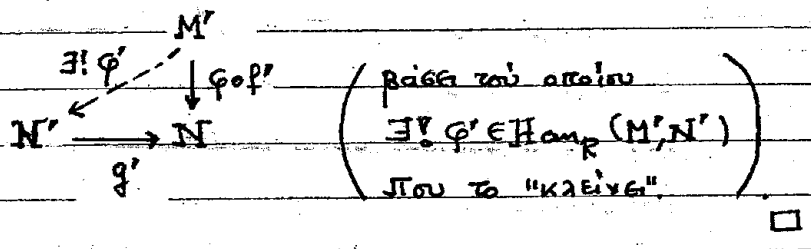 M'
∃! φ' φ∘f'
N' N
g'
βάσει τού οποίου
∃! φ' ∈ Hom_R (M', N')
που το "κλείνει".
□